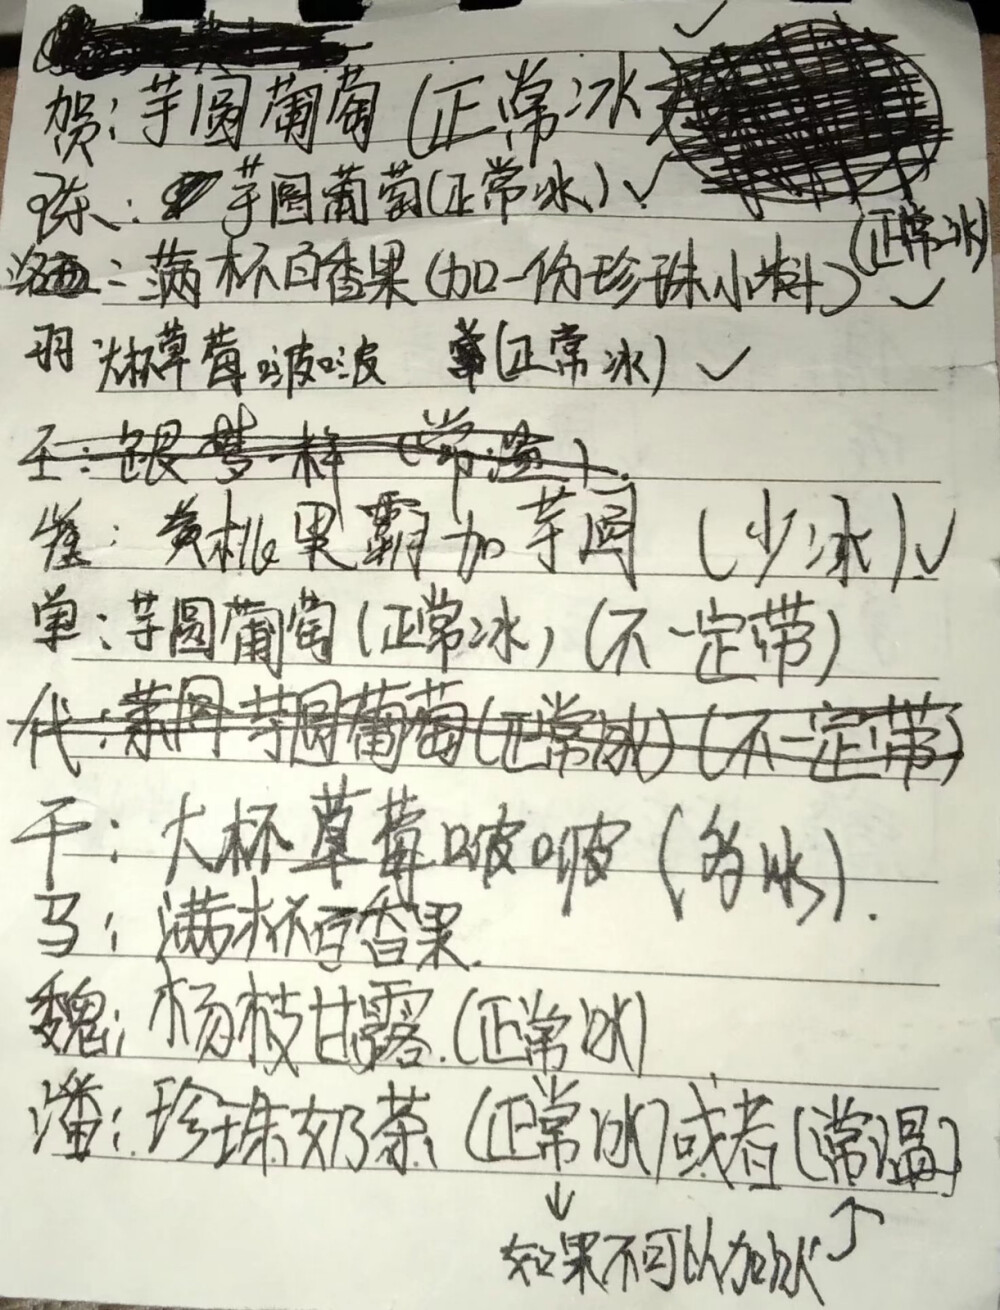 贺：芋圆葡萄(正常冰)
陈：芋圆葡萄(正常冰)✓
洛西：满杯百香果(加一份珍珠小料)(正常冰)✓
羽 大杯草莓啵啵 (正常冰)✓
王：跟梦一样(常温)
崔：黄桃果霸加芋圆(少冰)✓
单：芋圆葡萄(正常冰)(不一定带)
代：芋圆葡萄(正常冰)(不一定带)
干：大杯草莓啵啵(多冰).
马：满杯百香果.
魏：杨枝甘露.(正常冰)
潘：珍珠奶茶(正常冰)或者(常温)
如果不可以加冰